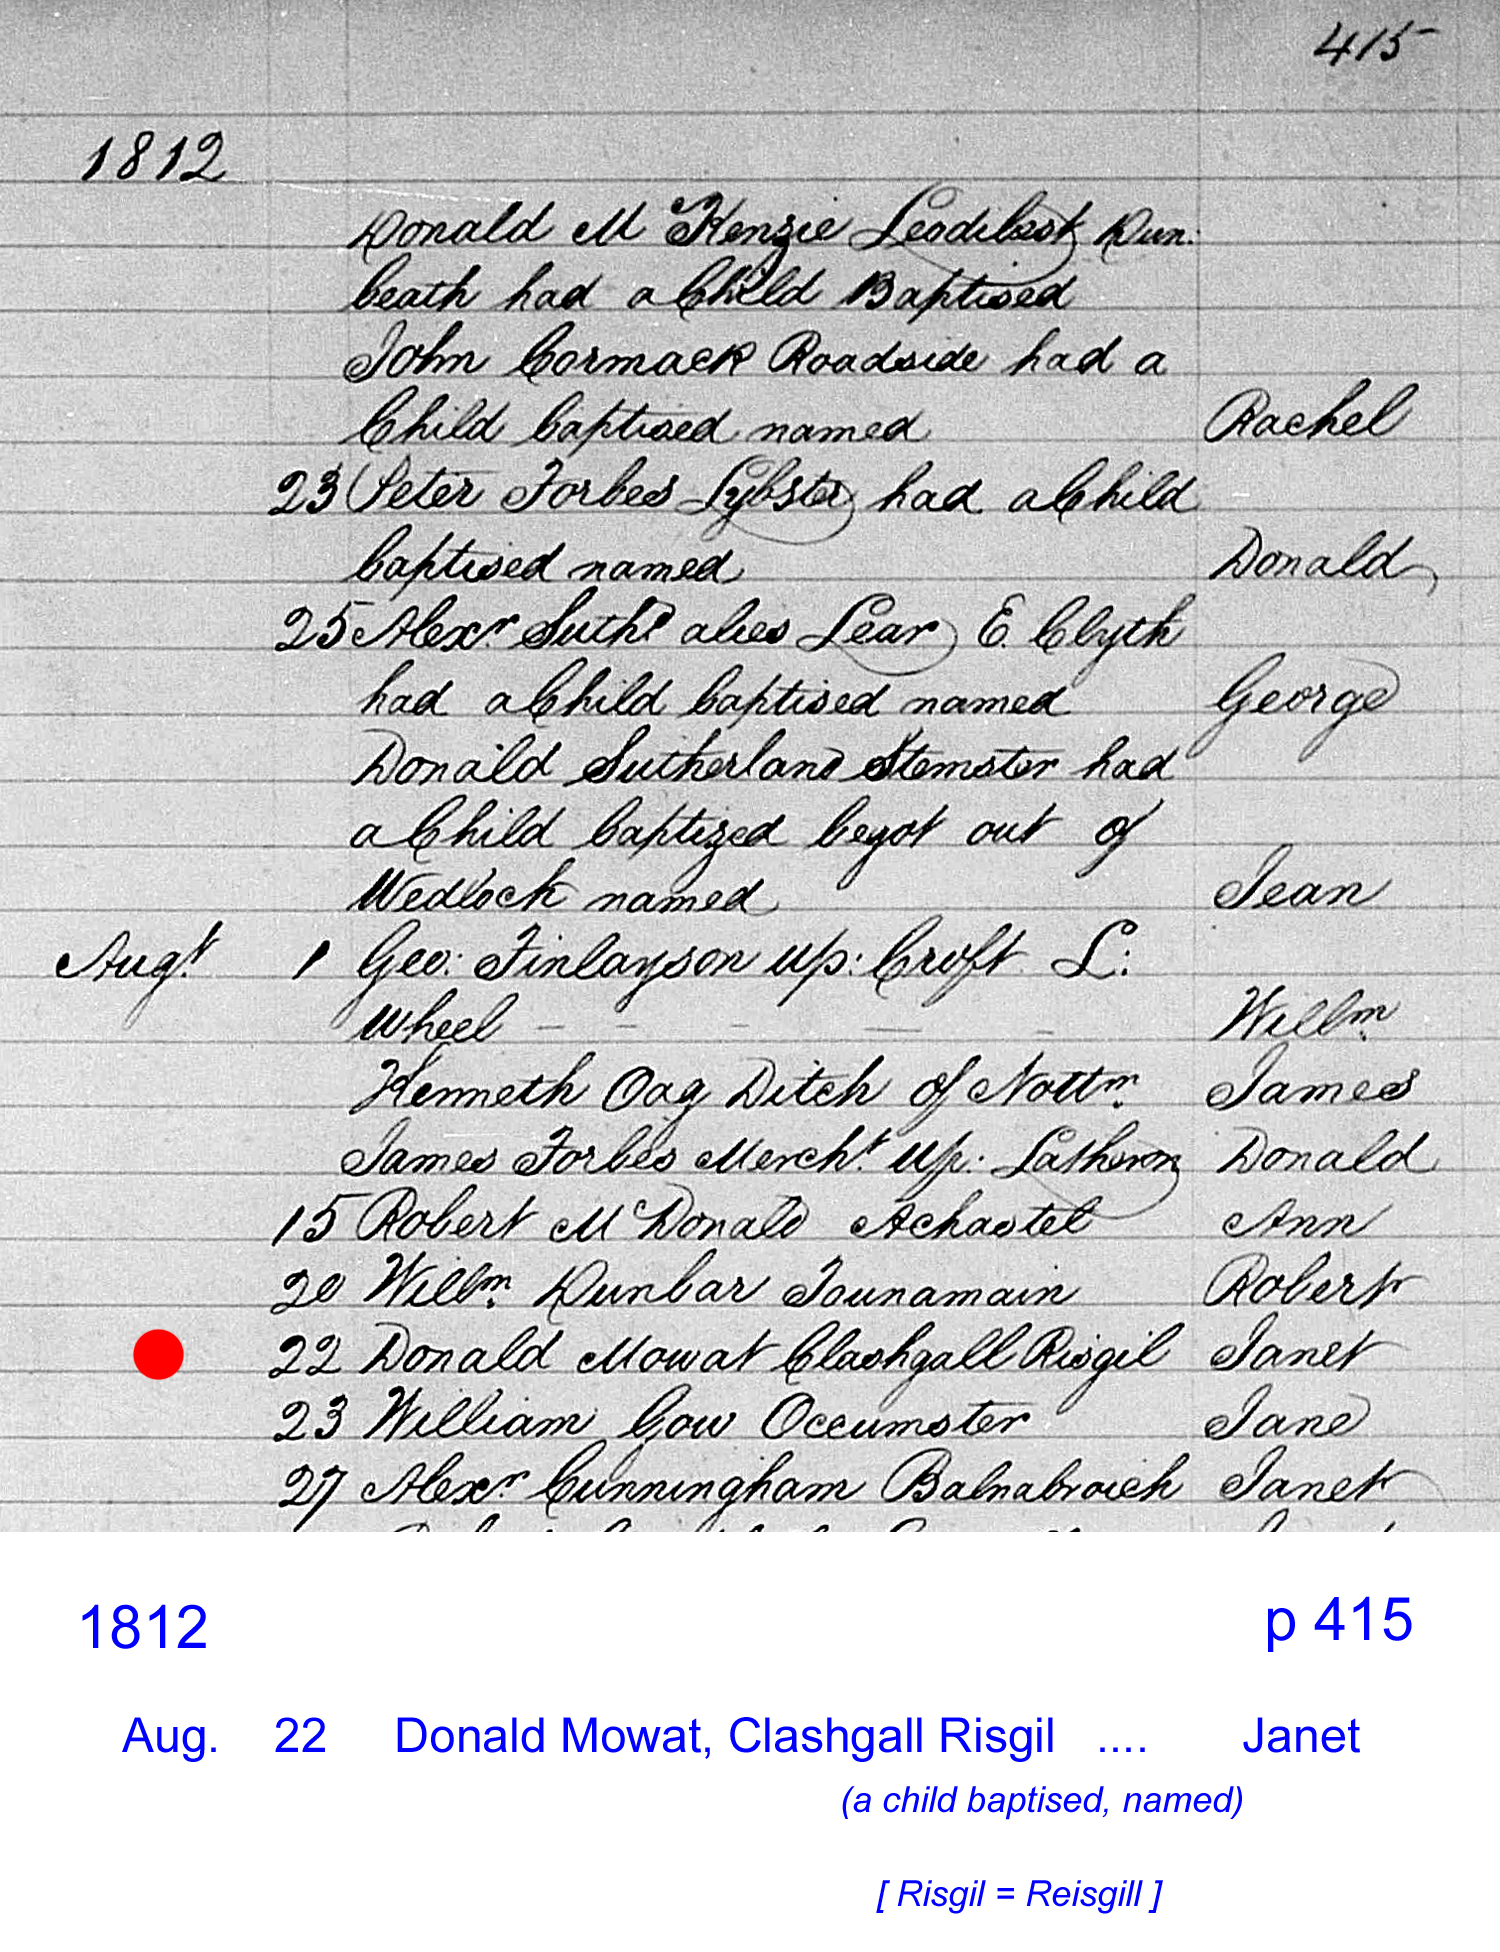 415
1812
Donald McKenzie Leodibest Dun:
beath had a Child Baptised
John Cormack Roadside had a
Child baptised named Rachel
23 Peter Forbes Lybster had a Child
baptised named Donald
25 Alexr Suthd alies Lear E. Clyth
had a Child baptised named George
Donald Sutherland Stemster had
a Child baptized begot out of
Wedlock named Jean
Augt 1 Geo: Finlayson Up: Croft L:
Wheel - - - - - Willm
Kenneth Oag Ditch of Nottm James
James Forbes Mercht Up: Latheron Donald
15 Robert McDonald Achastel Ann
20 Willm Dunbar Tounamain Robert
22 Donald Mowat Clashgall Risgil Janet
23 William Gow Occumster Jane
27 Alexr Cunningham Balnabroich Janet
1812 p 415
Aug. 22 Donald Mowat, Clashgall Risgil .... Janet
(a child baptised, named)
[ Risgil = Reisgill ]